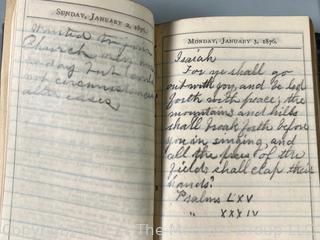 Sunday, January 2, 1876.
Wanted to join
Church
today but
not circumstances
Monday, January 3, 1876.
Isaiah
For ye shall go
out with joy, and be led
forth with peace; the
mountains and hills
shall break forth before
you in singing, and
all the trees of the
fields shall clap their
hands?
Psalms LXV
" XXXIV